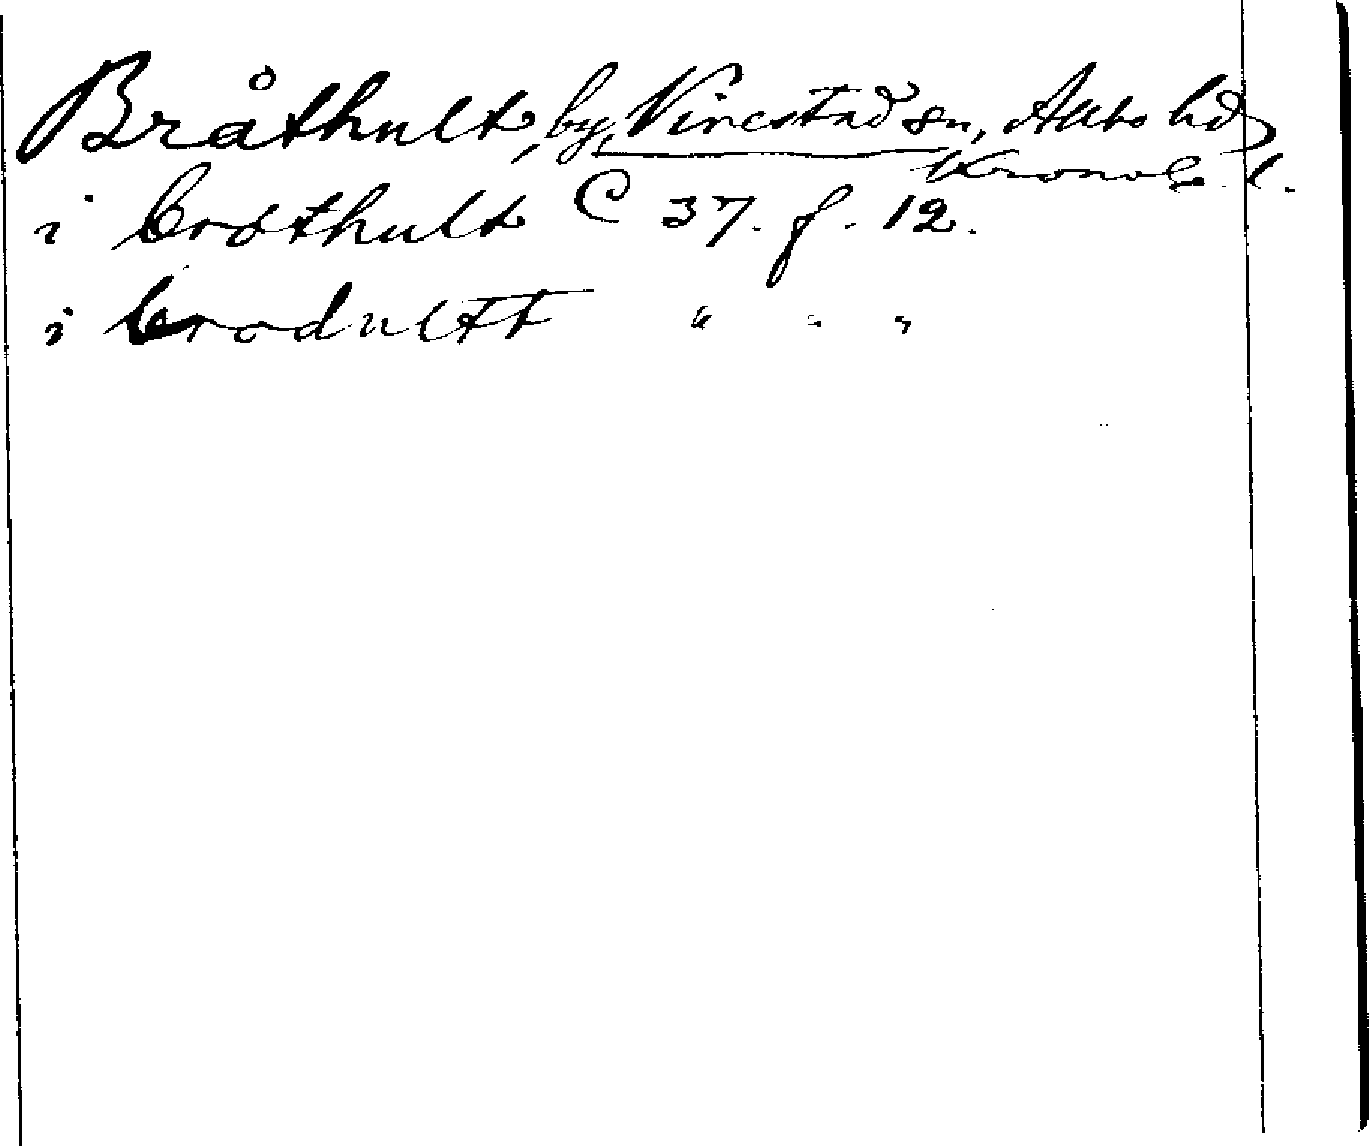 Bråthult, by, Virestad sn, Allbo hd,
Kronob. l.
i brothult C 37. f. 12.
i brodultt " " "